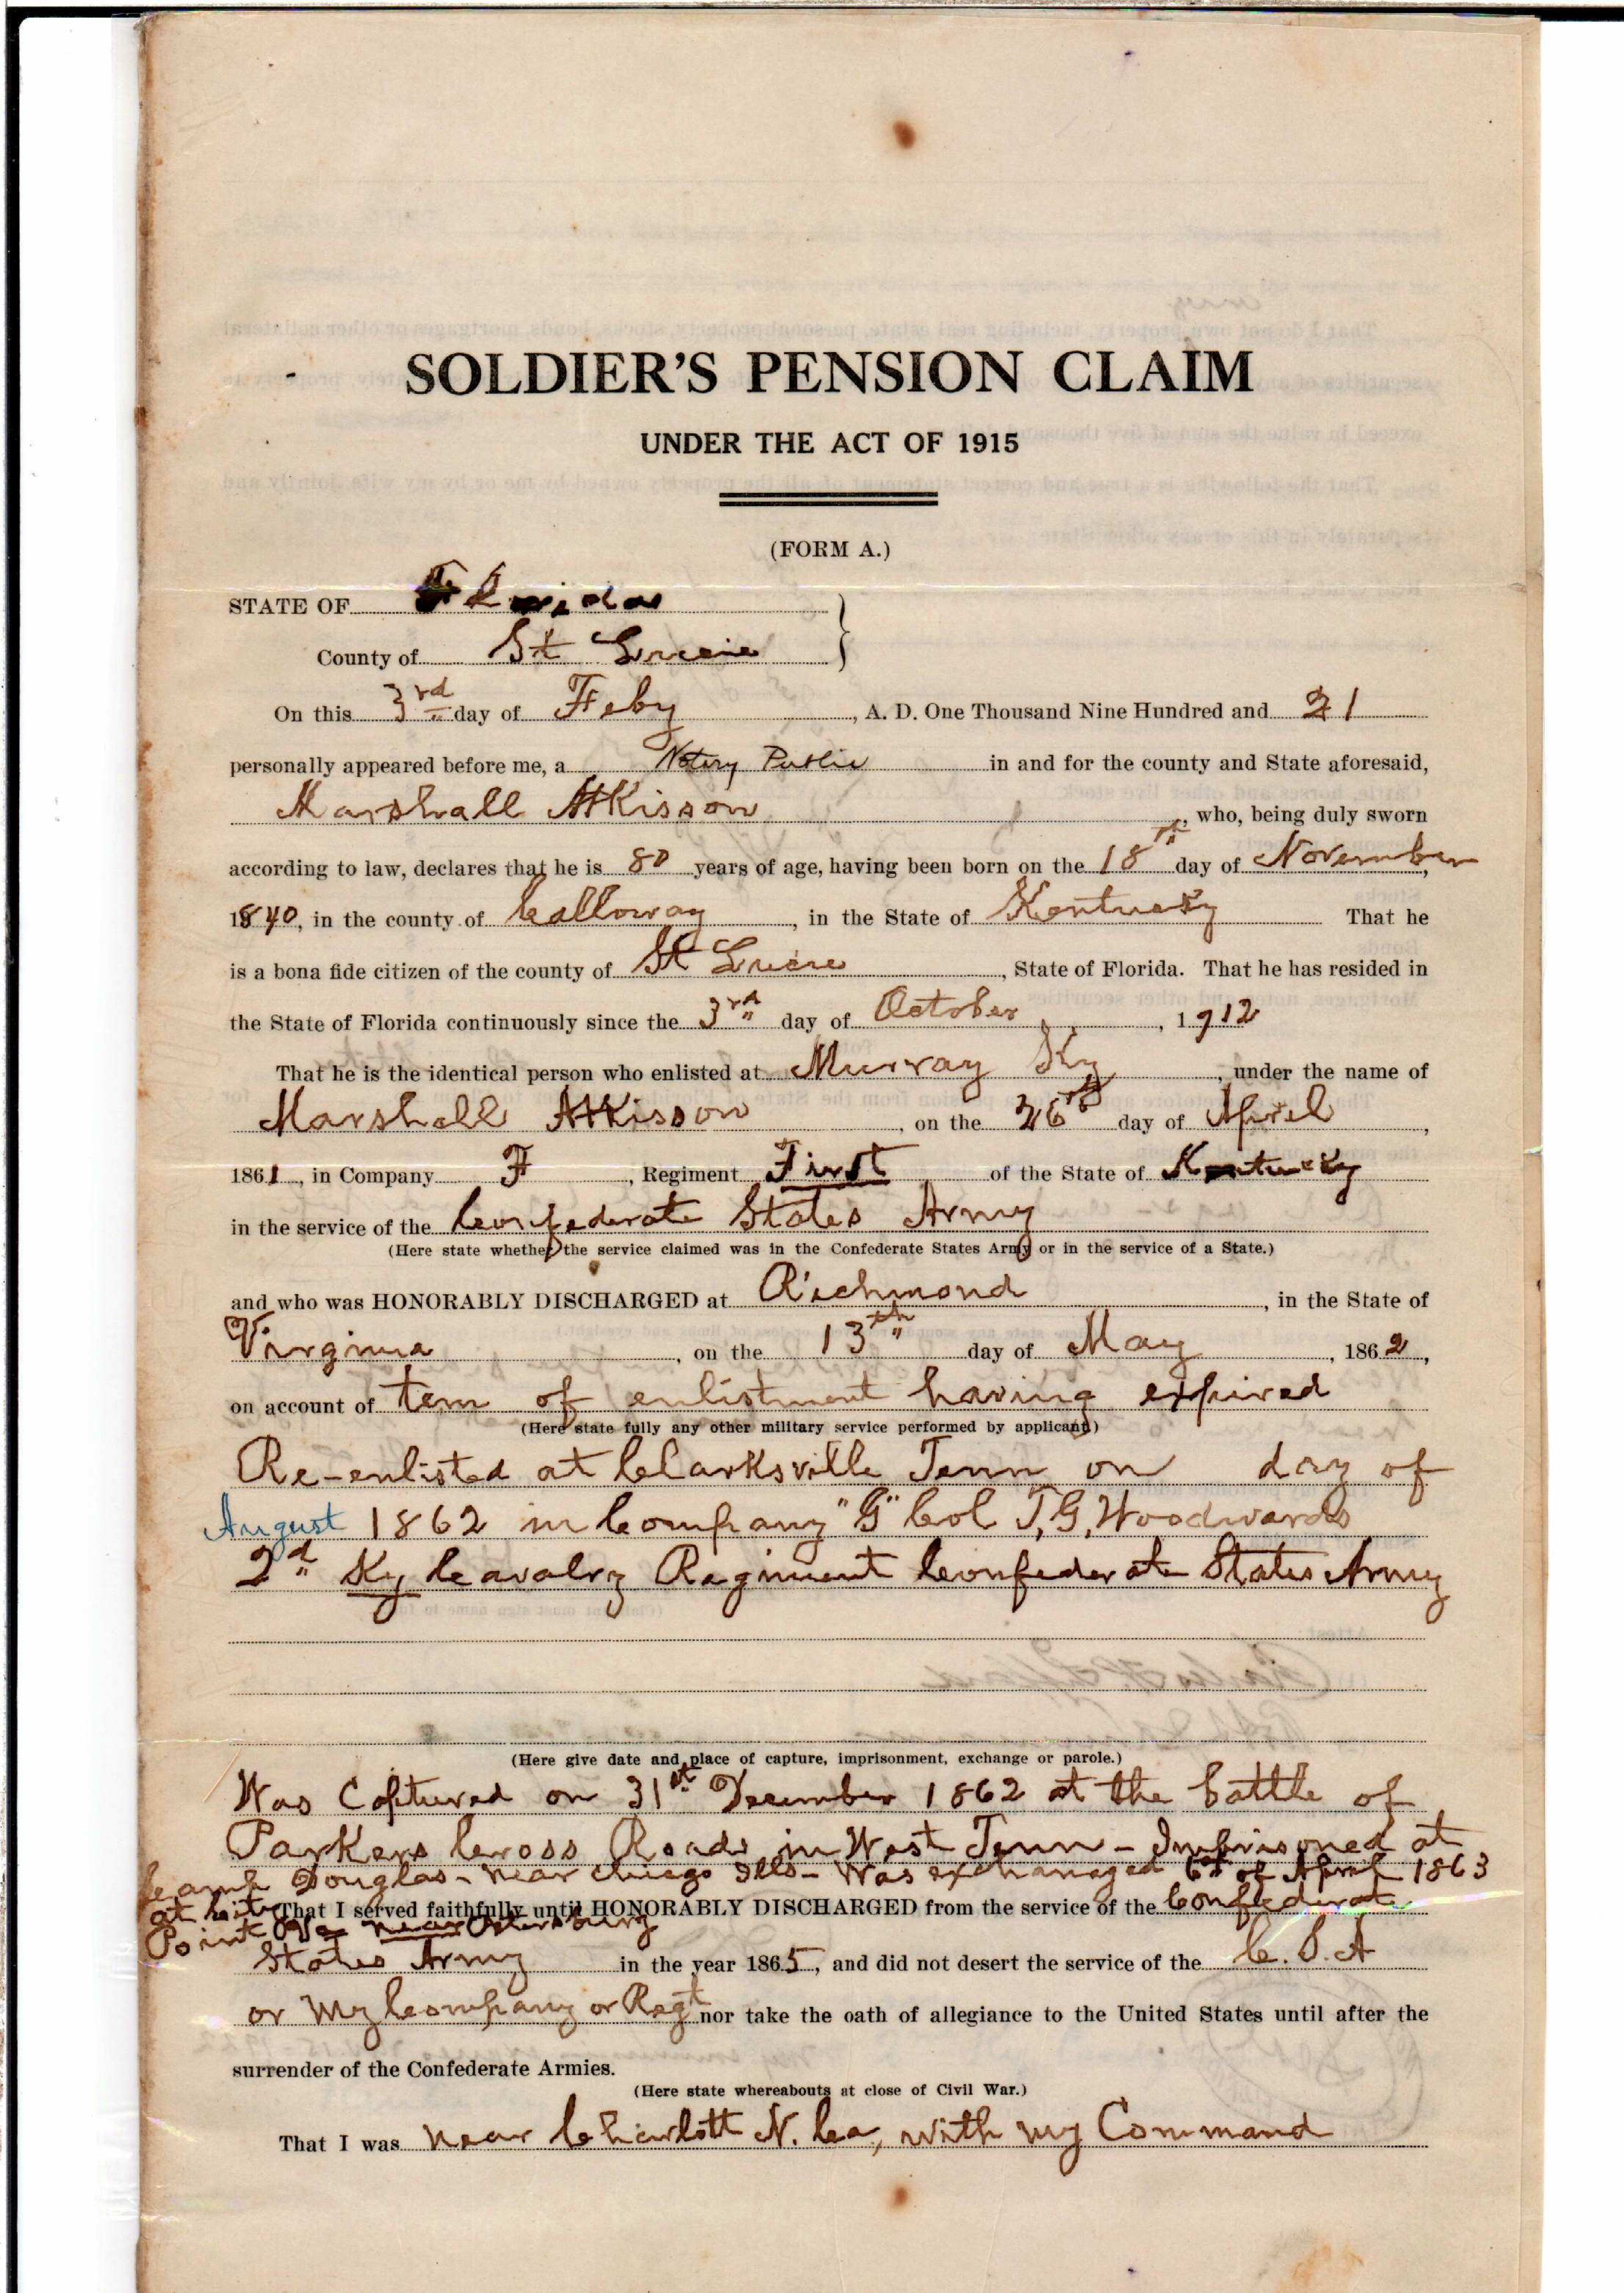 SOLDIER'S PENSION CLAIM
UNDER THE ACT OF 1915
(FORM A.)
STATE OF Florida
County of St Lucie
On this 3rd day of Feby, A. D. One Thousand Nine Hundred and 21
personally appeared before me, a Notary Public in and for the county and State aforesaid,
Marshall Atkisson, who, being duly sworn
according to law, declares that he is 80 years of age, having been born on the 18th day of November,
1840, in the county of Calloway, in the State of Kentucky That he
is a bona fide citizen of the county of St Lucie, State of Florida. That he has resided in
the State of Florida continuously since the 3rd day of October, 1912
That he is the identical person who enlisted at Murray Ky, under the name of
Marshall Atkisson, on the 26th day of April,
1861, in Company F, Regiment First of the State of Kentucky
in the service of the Confederate States Army
(Here state whether the service claimed was in the Confederate States Army or in the service of a State.)
and who was HONORABLY DISCHARGED at Richmond, in the State of
Virginia, on the 13th day of May, 1862,
on account of term of enlistment having expired
(Here state fully any other military service performed by applicant)
Re-enlisted at Clarksville Tenn on day of
August 1862 in Company "G" Col T,G, Woodwards
2d Ky Cavalry Regiment Confederate States Army
(Here give date and place of capture, imprisonment, exchange or parole.)
Was Captured on 31st December 1862 at the battle of
Parkers Cross Roads in West Tenn - Imprisoned at
Camp Douglas - near Chicago Ills - Was exchanged 6th of April 1863
at City
That I served faithfully until HONORABLY DISCHARGED from the service of the Confederate
Point Va near Petersburg
States Army in the year 1865, and did not desert the service of the C. S. A
or my Company or Regt nor take the oath of allegiance to the United States until after the
surrender of the Confederate Armies.
(Here state whereabouts at close of Civil War.)
That I was near Charlott N. Ca, with my Command